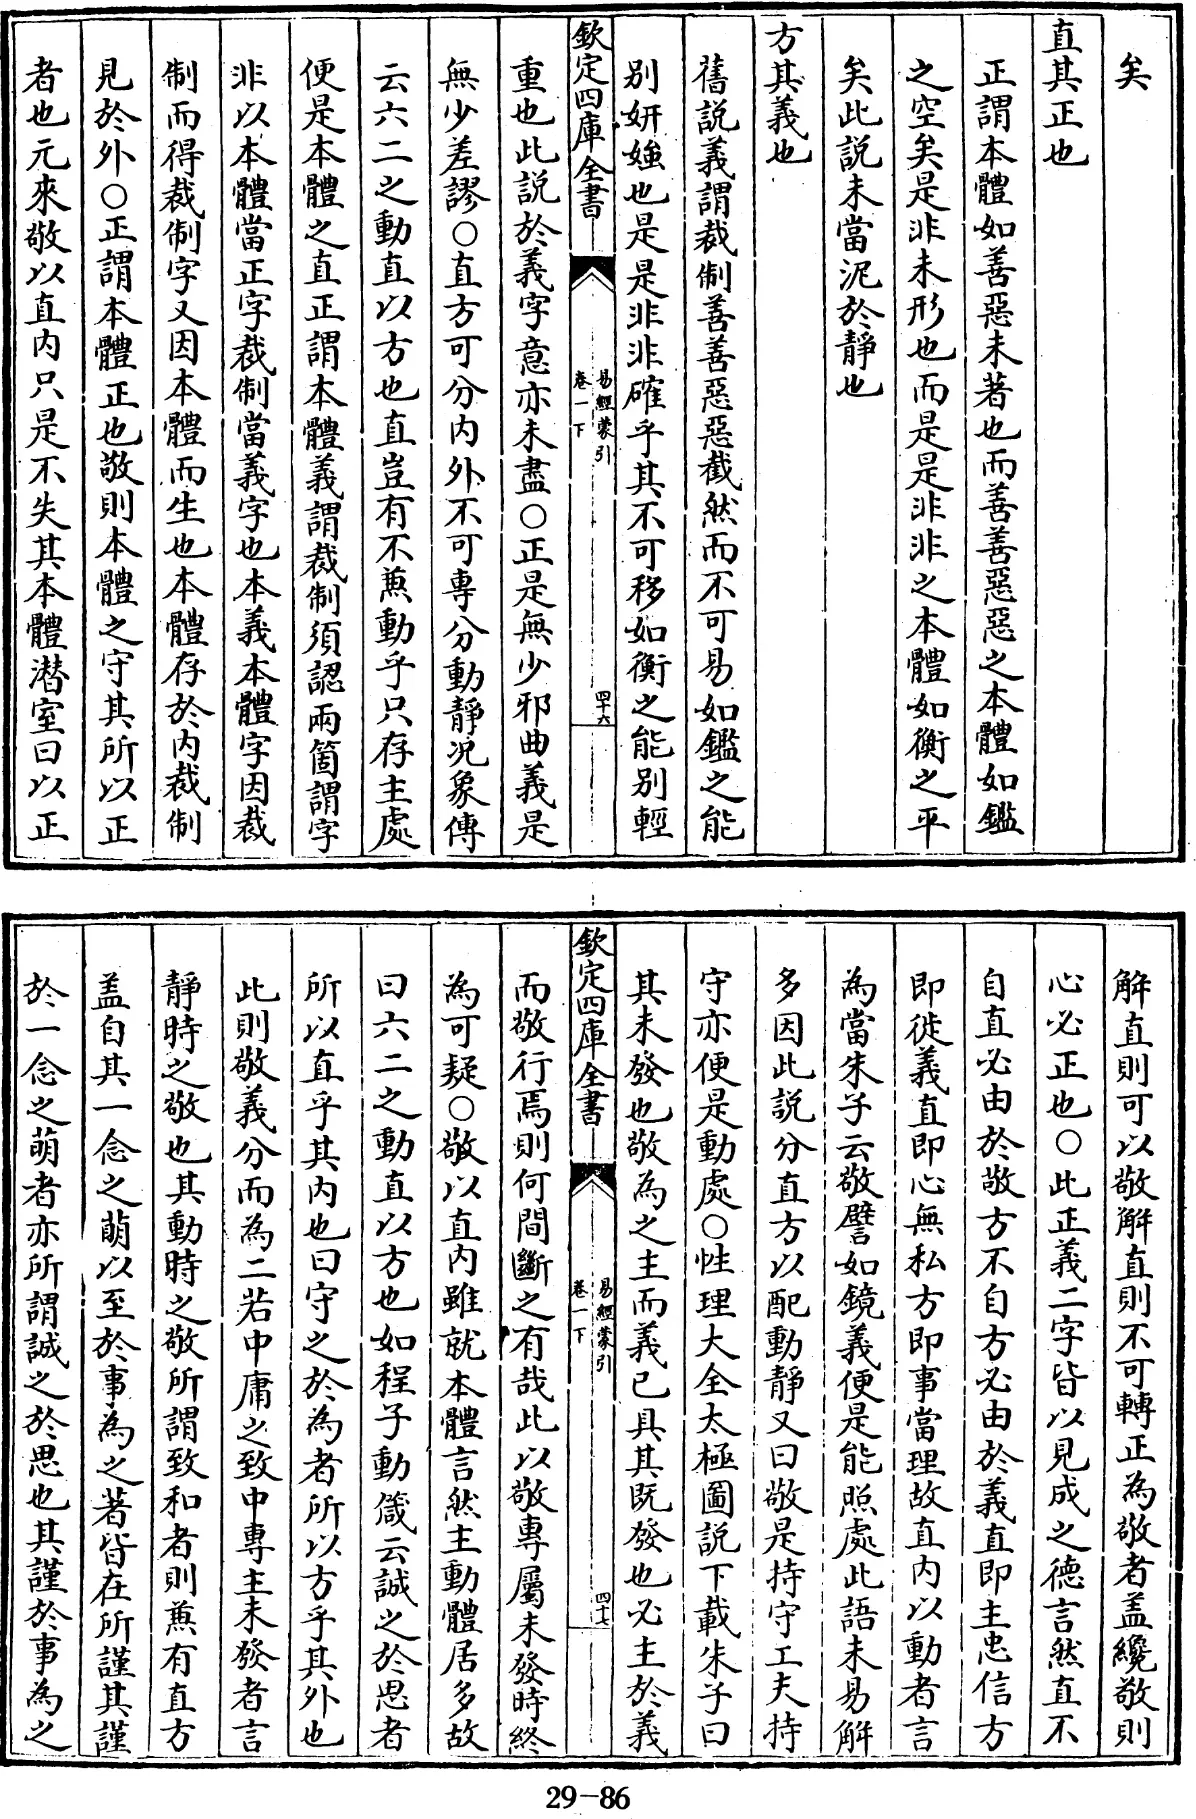 矣
直其正也
正謂本體如善惡未著也而善善惡惡之本體如鑑
之空矣是非未形也而是是非非之本體如衡之平
矣此説未當泥於靜也
方其義也
舊説義謂裁制善善惡惡截然而不可易如鑑之能
別妍媸也是是非非確乎其不可移如衡之能別輕
欽定四庫全書
易經蒙引
卷一下
四十六
重也此説於義字意亦未盡○正是無少邪曲義是
無少差謬○直方可分内外不可專分動靜况象傳
云六二之動直以方也直豈有不兼動乎只存主處
便是本體之直正謂本體義謂裁制須認兩箇謂字
非以本體當正字裁制當義字也本義本體字因裁
制而得裁制字又因本體而生也本體存於内裁制
見於外○正謂本體正也敬則本體之守其所以正
者也元來敬以直内只是不失其本體潜室曰以正
解直則可以敬解直則不可轉正為敬者盖纔敬則
心必正也○此正義二字皆以見成之德言然直不
自直必由於敬方不自方必由於義直即主忠信方
即徙義直即心無私方即事當理故直内以動者言
為當朱子云敬譬如鏡義便是能照處此語未易解
多因此説分直方以配動靜又曰敬是持守工夫持
守亦便是動處○性理大全太極圖説下載朱子曰
其未發也敬為之主而義已具其既發也必主於義
欽定四庫全書
易經蒙引
卷一下
四十七
而敬行焉則何間斷之有哉此以敬專屬未發時終
為可疑○敬以直内雖就本體言然主動體居多故
曰六二之動直以方也如程子動箴云誠之於思者
所以直乎其内也曰守之於為者所以方乎其外也
此則敬義分而為二若中庸之致中專主未發者言
靜時之敬也其動時之敬所謂致和者則兼有直方
盖自其一念之萌以至於事為之著皆在所謹其謹
於一念之萌者亦所謂誠之於思也其謹於事為之
29-86